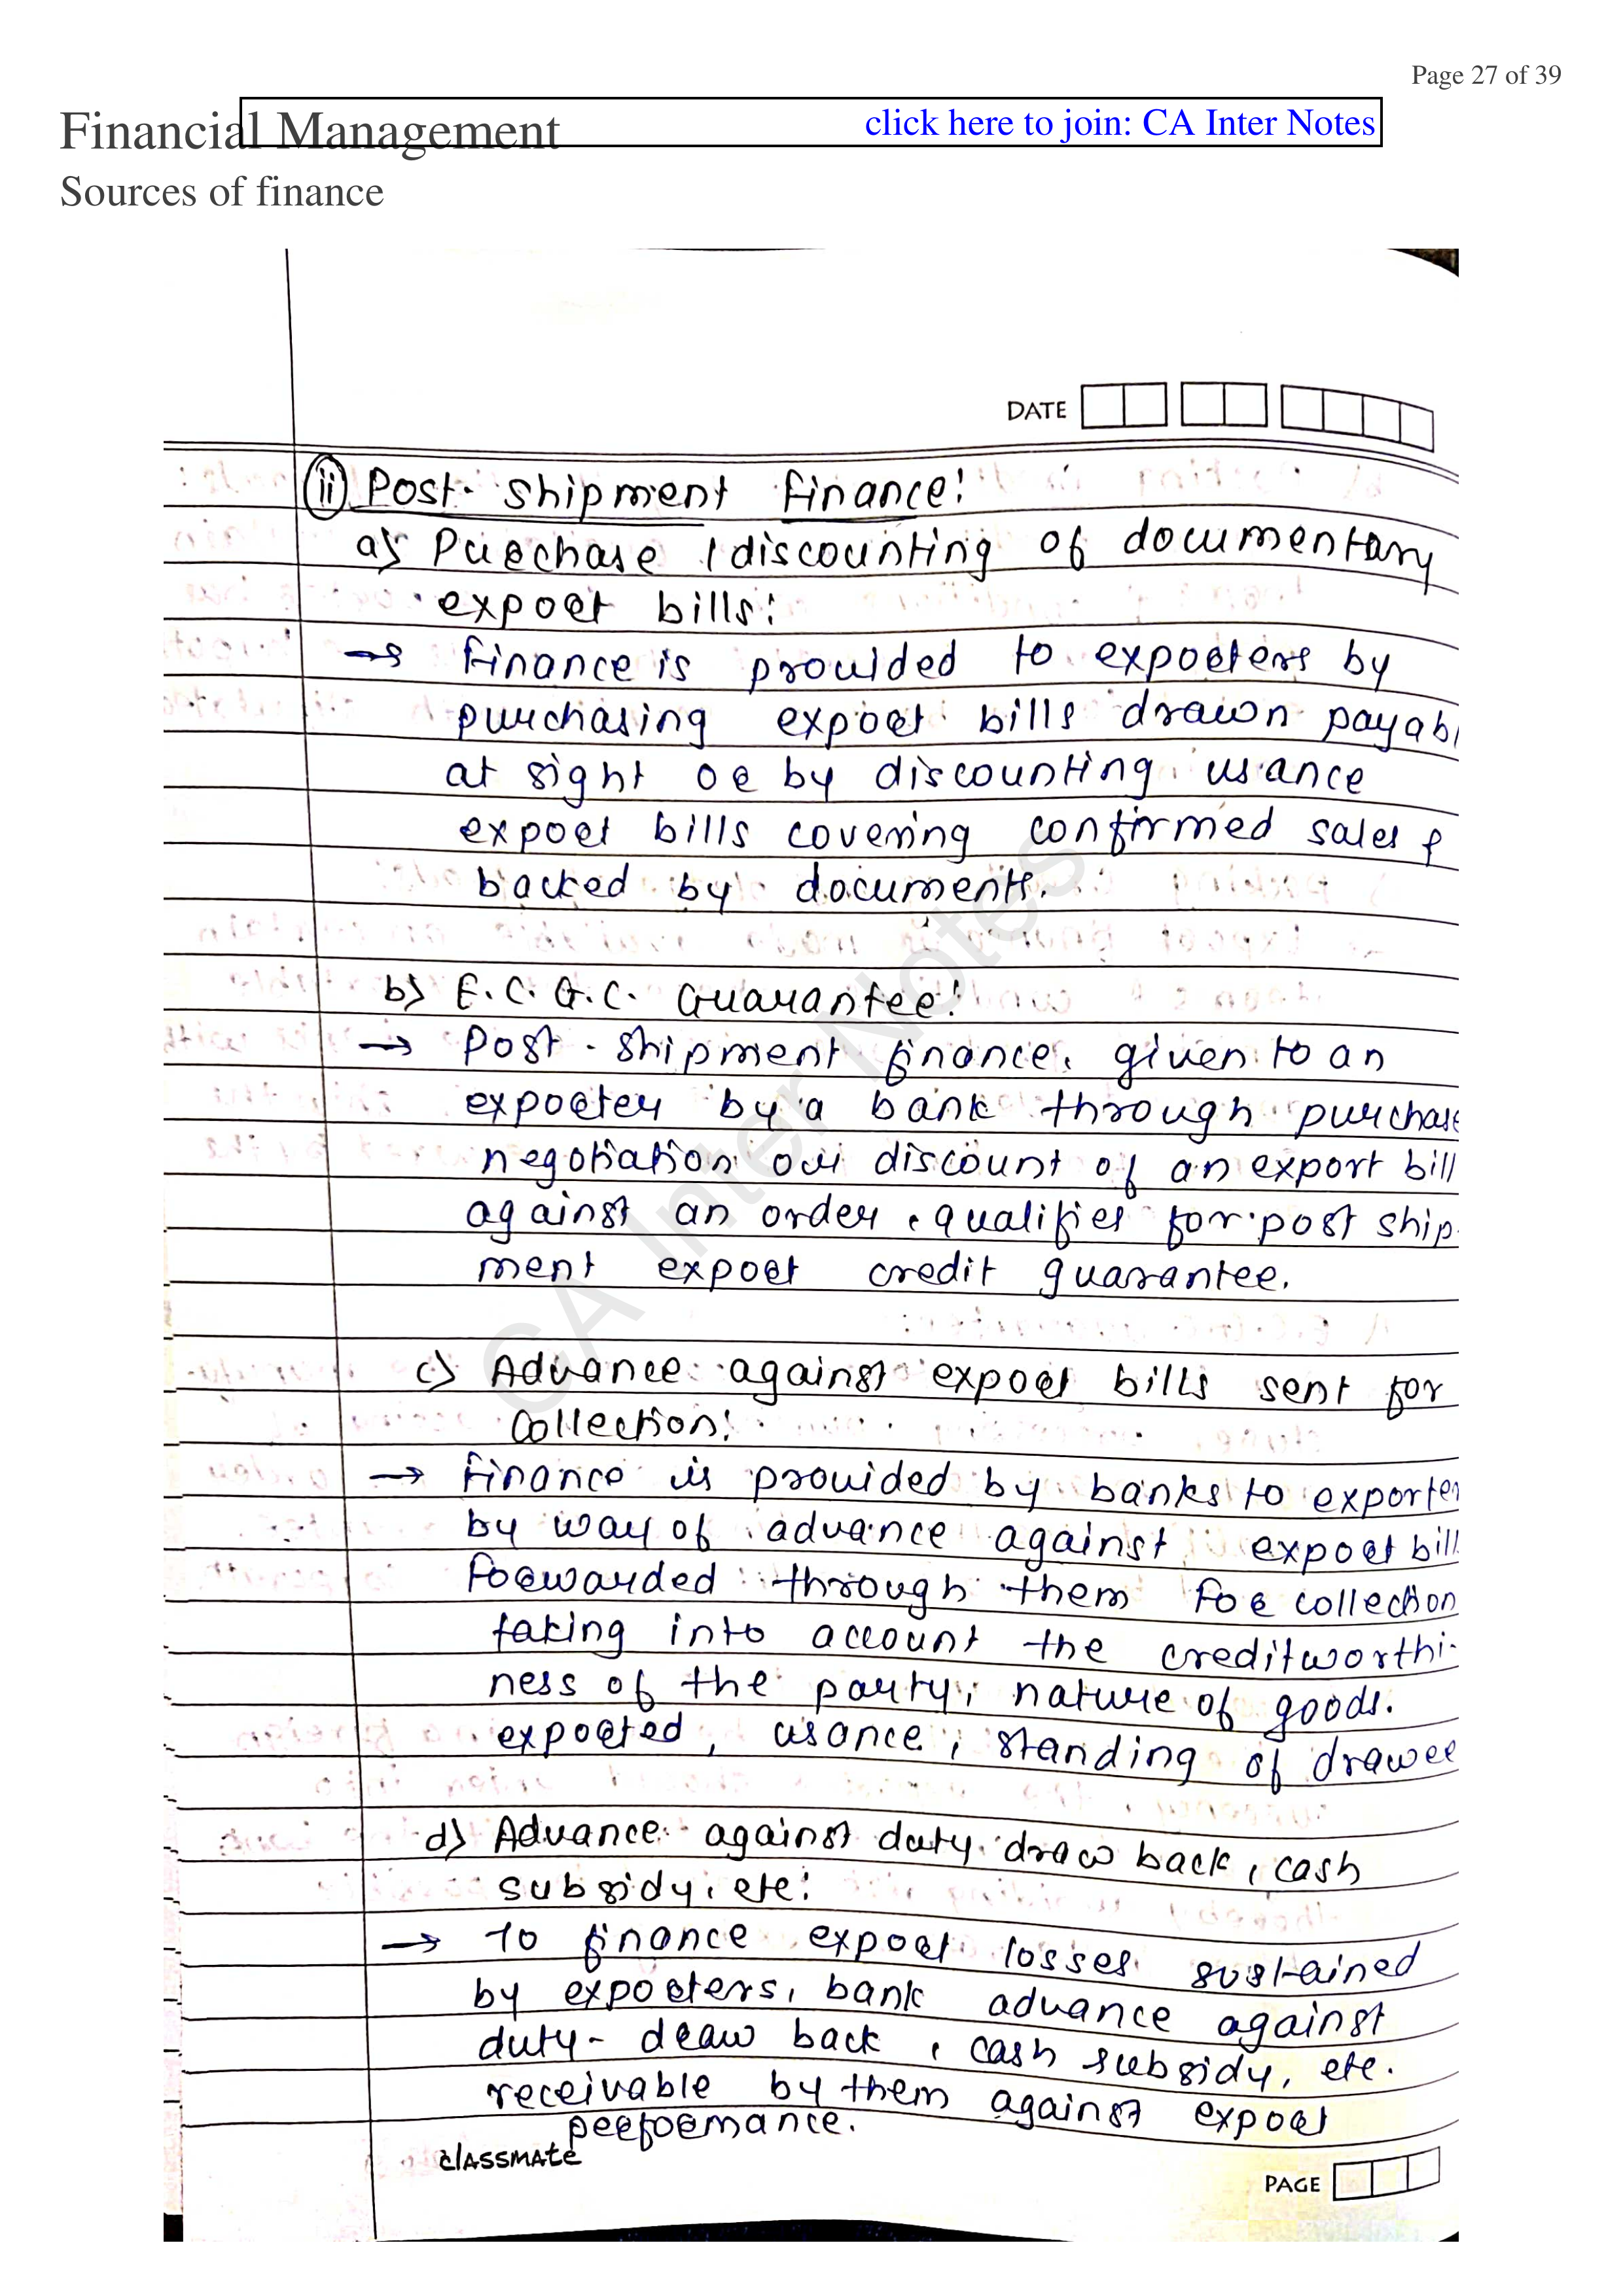 Page 27 of 39
Financial Management
click here to join: CA Inter Notes
Sources of finance
DATE
(ii) Post-shipment finance:
a) Purchase / discounting of documentary
export bills:
→ Finance is provided to exporters by
purchasing export bills drawn payabl
at sight or by discounting usance
export bills covering confirmed sales &
backed by documents.
b) E.C.G.C. Guarantee:
→ Post-shipment finance, given to an
exporter by a bank through purchase
negotiation or discount of an export bill
against an order, qualifies for post ship-
ment export credit guarantee.
c) Advance against export bills sent for
Collection:
→ Finance is provided by banks to exporter
by way of advance against export bill
forwarded through them for collection
taking into account the creditworthi-
ness of the party, nature of goods.
exported, usance, standing of drawee
d) Advance against duty draw back, cash
subsidy, etc:
→ To finance export losses sustained
by exporters, bank advance against
duty-draw back, cash subsidy, etc.
receivable by them against export
performance.
classmate
PAGE
CA Inter Notes